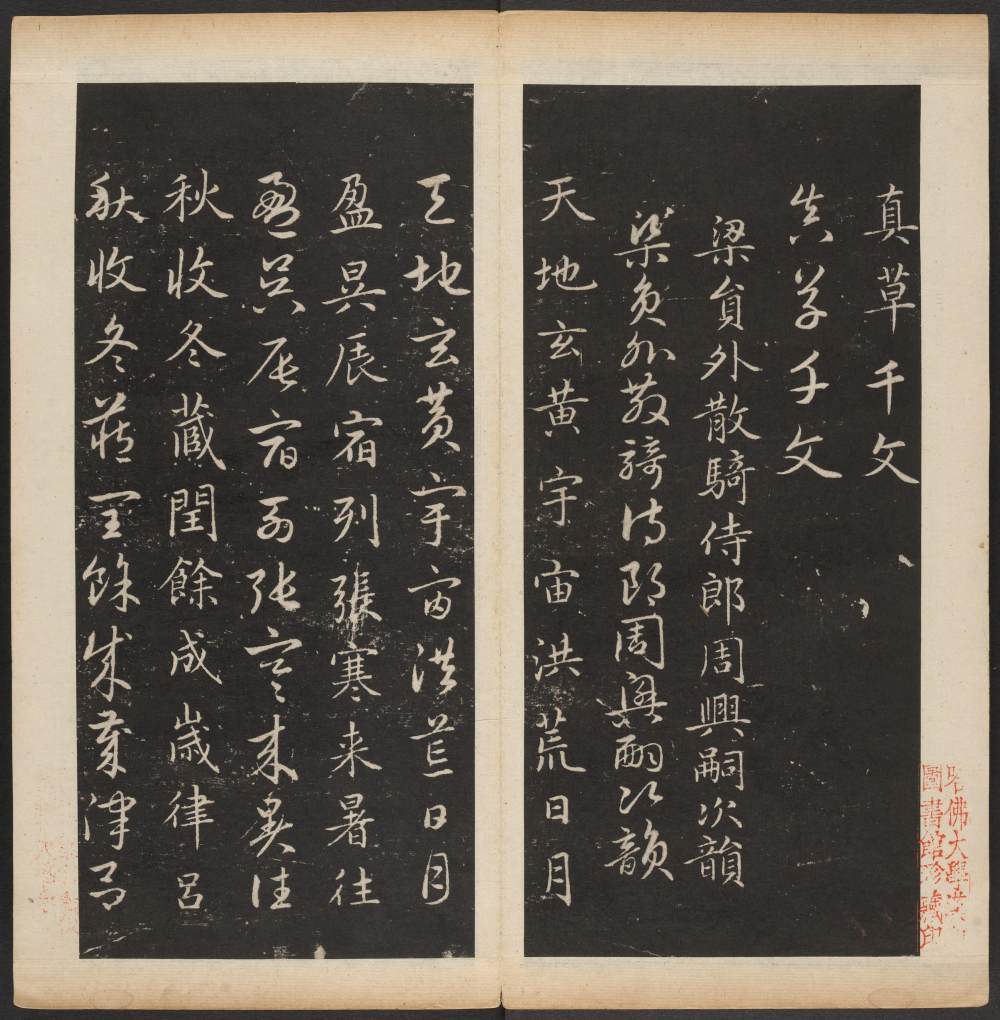 真草千文
真草千文
梁員外散騎侍郎周興嗣次韻
梁員外散騎侍郎周興嗣次韻
天地玄黃宇宙洪荒日月
天地玄黃宇宙洪荒日月
盈昃辰宿列張寒来暑往
盈昃辰宿列張寒来暑往
秋收冬藏閏餘成歲律呂
秋收冬藏閏餘成歲律呂
佛大學漢
圖書館珍藏印